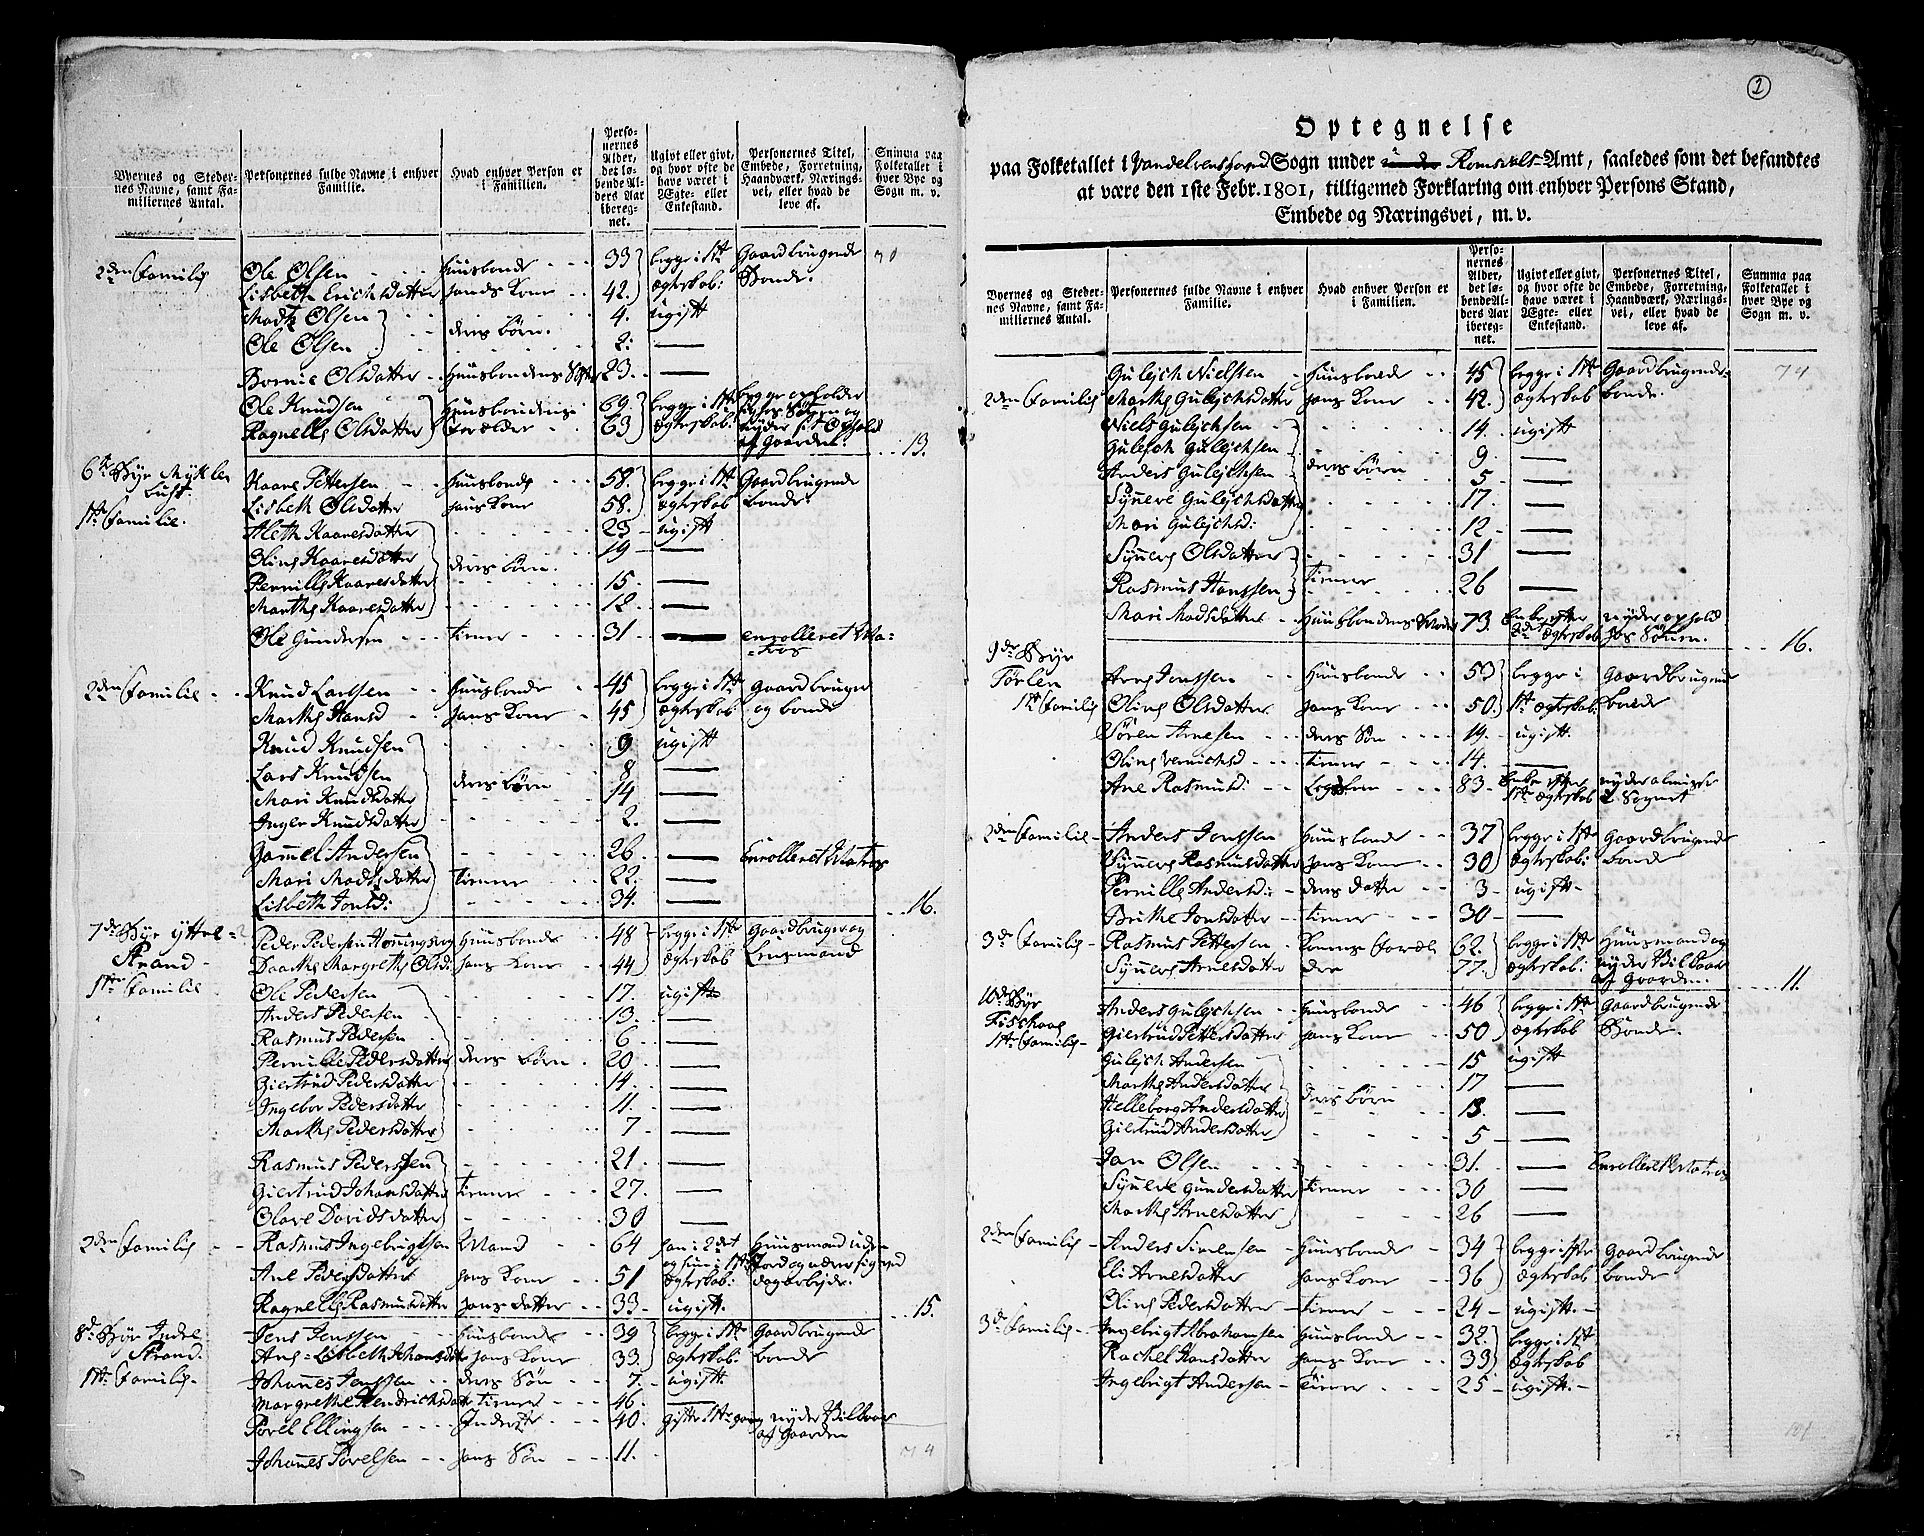 Byernes og Steder-
nes Navne, samt Fa-
miliernes Antal.
Personernes fulde Navne i enhver
Familie.
Hvad enhver Person er
i Familien.
Perso-
nernes
Alder,
det lø-
bende Al-
ders Aar
ibereg-
net.
Ugivt eller givt,
og hvor ofte de
have været i
Ægte- eller
Enkestand.
Personernes Titel,
Embede, Forretning,
Haandværk, Nærings-
vei, eller hvad de
leve af.
Summa paa
Folketallet i
hver Bye og
Sogn m. v.
2den Familie Ole Olsen Huusbonde 33 begge i 1ste Gaardbrugende 30
Lisbeth Erichsdatter hands Kone 42. Ægteskab: Bonde.
Madtz Olsen 4. ugift
Ole Olsen deres Børn. 2. —
Olsdatter Huusbondens 23. —
Ole Knudsen Huusbondens 69. begge i 1ste begge opholder
Ragnelle Olsdatter Forældre 63 Ægteskab:
af Gaarden. 13.
6te Bye Mykle
1ste Familie.
Kaare Pettersen Huusbonde 58. begge i 1ste Gaardbrugende
Lisbeth Olsdatter hans Kone 58. Ægteskab bonde.
Aleth Kaaresdatter 23 ugift
Oline Kaaresdatter 19 —
deres Børn.
Pernille Kaaresdatter 15. —
Marthe Kaaresdatter 12. —
Ole Gundersen Tiener 31 — enrolleret Ma-
tros
2den Familie Knud Larssen Huusbonde 45 begge i 1ste Gaardbruger
Marthe Hansd hans Kone 45 Ægteskab og bonde
Knud Knudsen 9 ugift
Lars Knudsen 8 —
deres Børn
Mari Knudsdatter 14 —
Inger Knudsdatter 2. —
Gammel Andersen 26 — Enrolleret Matros
Mari Madtsdatter Tiener 22. —
Lisbeth Jonsd: 34. — 16.
7de Bye Yttre
Strand
1ste Familie
Peder Pedersen Huusbonde 48 begge i 1ste Gaardbruger og
Daarthe Margrethe Olsd: hans Kone 44 Ægteskab Lensmand
Ole Pedersen 17. ugift
Anders Pedersen 13. —
Rasmus Pedersen 6 —
Pernille Pedersdatter deres Børn 20 —
Giertrud Pedersdatter 14. —
Ingebor Pedersdatter 11. —
Marthe Pedersdatter 7 —
Rasmus Pederssen 21 —
Giertrud Johansdatter Tiener 27. —
Olave Davidsdatter 30 —
2den Familie Rasmus Ingebrigtsen Mand 64 han i 2det Huusmand uden
Ane Pedersdatter hans Kone 51 og hun i 1ste Jord og nærer sig ved
Ægteskab: dagarbejde.
Ragnelle Rasmusdatter hans datter 33 ugift. 15.
8de Bye Indre
Strand.
1ste Familie
Jens Jenssen Huusbonde 39 begge i 1ste Gaardbrugende
Ane Lisbeth Johansdatter hans Kone 33. Ægteskab: bonde
Johannes Jenssen deres Søn 7. ugift.
Margrethe Hendrichsdatter Tiener 46. —
Povel Ellingsen Inderste 40. gift 1ste gang nyder
af Gaarden
Johannes Povelsen hans Søn 11. 74
2
Optegnelse
paa Folketallet i Sogn under Romsdals Amt, saaledes som det befandtes
at være den 1ste Febr. 1801, tilligemed Forklaring om enhver Persons Stand,
Embede og Næringsvei, m. v.
Byernes og Steder-
nes Navne, samt Fa-
miliernes Antal.
Personernes fulde Navne i enhver
Familie.
Hvad enhver Person er
i Familien.
Perso-
nernes
Alder,
det lø-
bende Al-
ders Aar
ibereg-
net.
Ugivt eller givt,
og hvor ofte de
have været i
Ægte- eller
Enkestand.
Personernes Titel,
Embede, Forretning,
Haandværk, Nærings-
vei, eller hvad de
leve af.
Summa paa
Folketallet i
hver Bye og
Sogn m. v.
Gulejch Nielsen Huusbonde 45 begge i 1ste Gaardbrugende 74
2den Familie Marthe Gulejchsdatter hans Kone 42. Ægteskab bonde.
Niels Gulejchsen 14. ugift
Gulejch Gulejchsen 9. —
Anders Gulejchsen deres Børn 5 —
Synneve Gulejchsdatter 17 —
Mari Gulejchsd: 12 —
Synneve Olsdatter 31 —
Rasmus Hanssen Tiener 26 —
Mari Madsdatter Huusbondens Moder 73. Enke efter nyder ophold
Ægteskab hos Sønnen. 16.
9de Bye
1ste Familie
Arne Jonssen Huusbonde 53 begge i Gaardbrugende
Oline Olsdatter hans Kone 50 1ste Ægteskab bonde
Søren Arnesen deres Søn 19. ugift.
Oline Tiener 14. —
Ane Rasmusd: 83 Enke efter nyder almisse
1ste Ægteskab i Sognet
2den Familie Anders Jonssen Huusbonde 37 begge i 1ste Gaardbrugende
Synneve Rasmusdatter hans Kone 30 Ægteskab: bonde
Pernille Andersd: deres datter 3 ugift
Brithe Jonsdatter Tiener 30 —
3de Familie Rasmus Pettersen Konens Foræl 62. begge i 1ste Huusmand og
Synneve Arnesdatter dre 77. Ægteskab:
af Gaarden. 11.
10de Bye
1ste Familie
Anders Gulejchsen Huusbonde 46 begge i 1ste Gaardbrugende
Giertrud Pettersdatter hans Kone 50 Ægteskab Bonde.
Gulejch Andersen 15 ugift
Marthe Andersdatter 17 —
Helleborg Andersdatter deres Børn 13. —
Giertrud Andersdatter 5 —
Jon Olsen 31. — Enrolleret Matros
Synneve Gundersdatter Tiener 30 —
Marthe Arnesdatter 26 —
2den Familie Anders Huusbonde 34 begge i 1ste Gaardbrugende
Eli Arnesdatter hans Kone 36 Ægteskab bonde
Oline Pedersdatter Tiener 24 ugift.
3de Familie Ingebrigt Abrahamsen Huusbonde 32. begge i 1ste
Rachel Hansdatter hans Kone 39 Ægteskab
Ingebrigt Andersen Tiener 25 ugift.
101